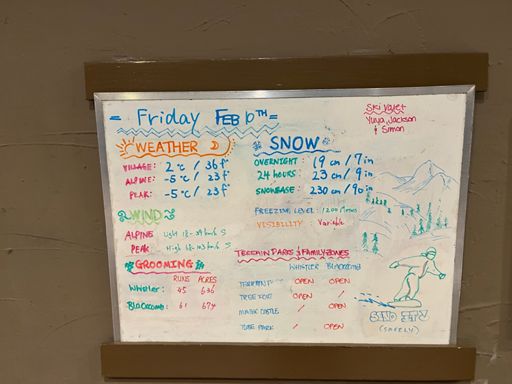 = Friday FEB 10TH =
Ski Valet
Yuya, Jackson
& Simon
WEATHER
VILLAGE: 2°C / 36°F
ALPINE: -5°C / 23°F
PEAK: -5°C / 23°F
SNOW
OVERNIGHT: 19 cm / 7 in
24 HOURS: 23 cm / 9 in
SNOWBASE: 230 cm / 90 in
FREEZING LEVEL: 1200 Metres
VISIBILITY: Variable
WIND
ALPINE Light S
PEAK High S
GROOMING
RUNS ACRES
Whistler: 45 636
Blackcomb: 61 674
TERRAIN PARKS & FAMILY ZONES
WHISTLER BLACKCOMB
OPEN OPEN
TREE FORT OPEN /
MAGIC CASTLE / OPEN
TUBE PARK / OPEN
SEND IT
(SAFELY)